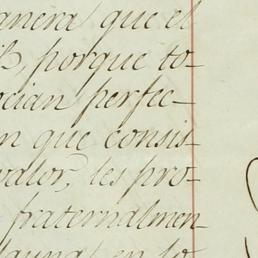 anera que el
porque to-
ocian perfec-
n que consis-
valor, les pro-
fraternalmen-
en lo